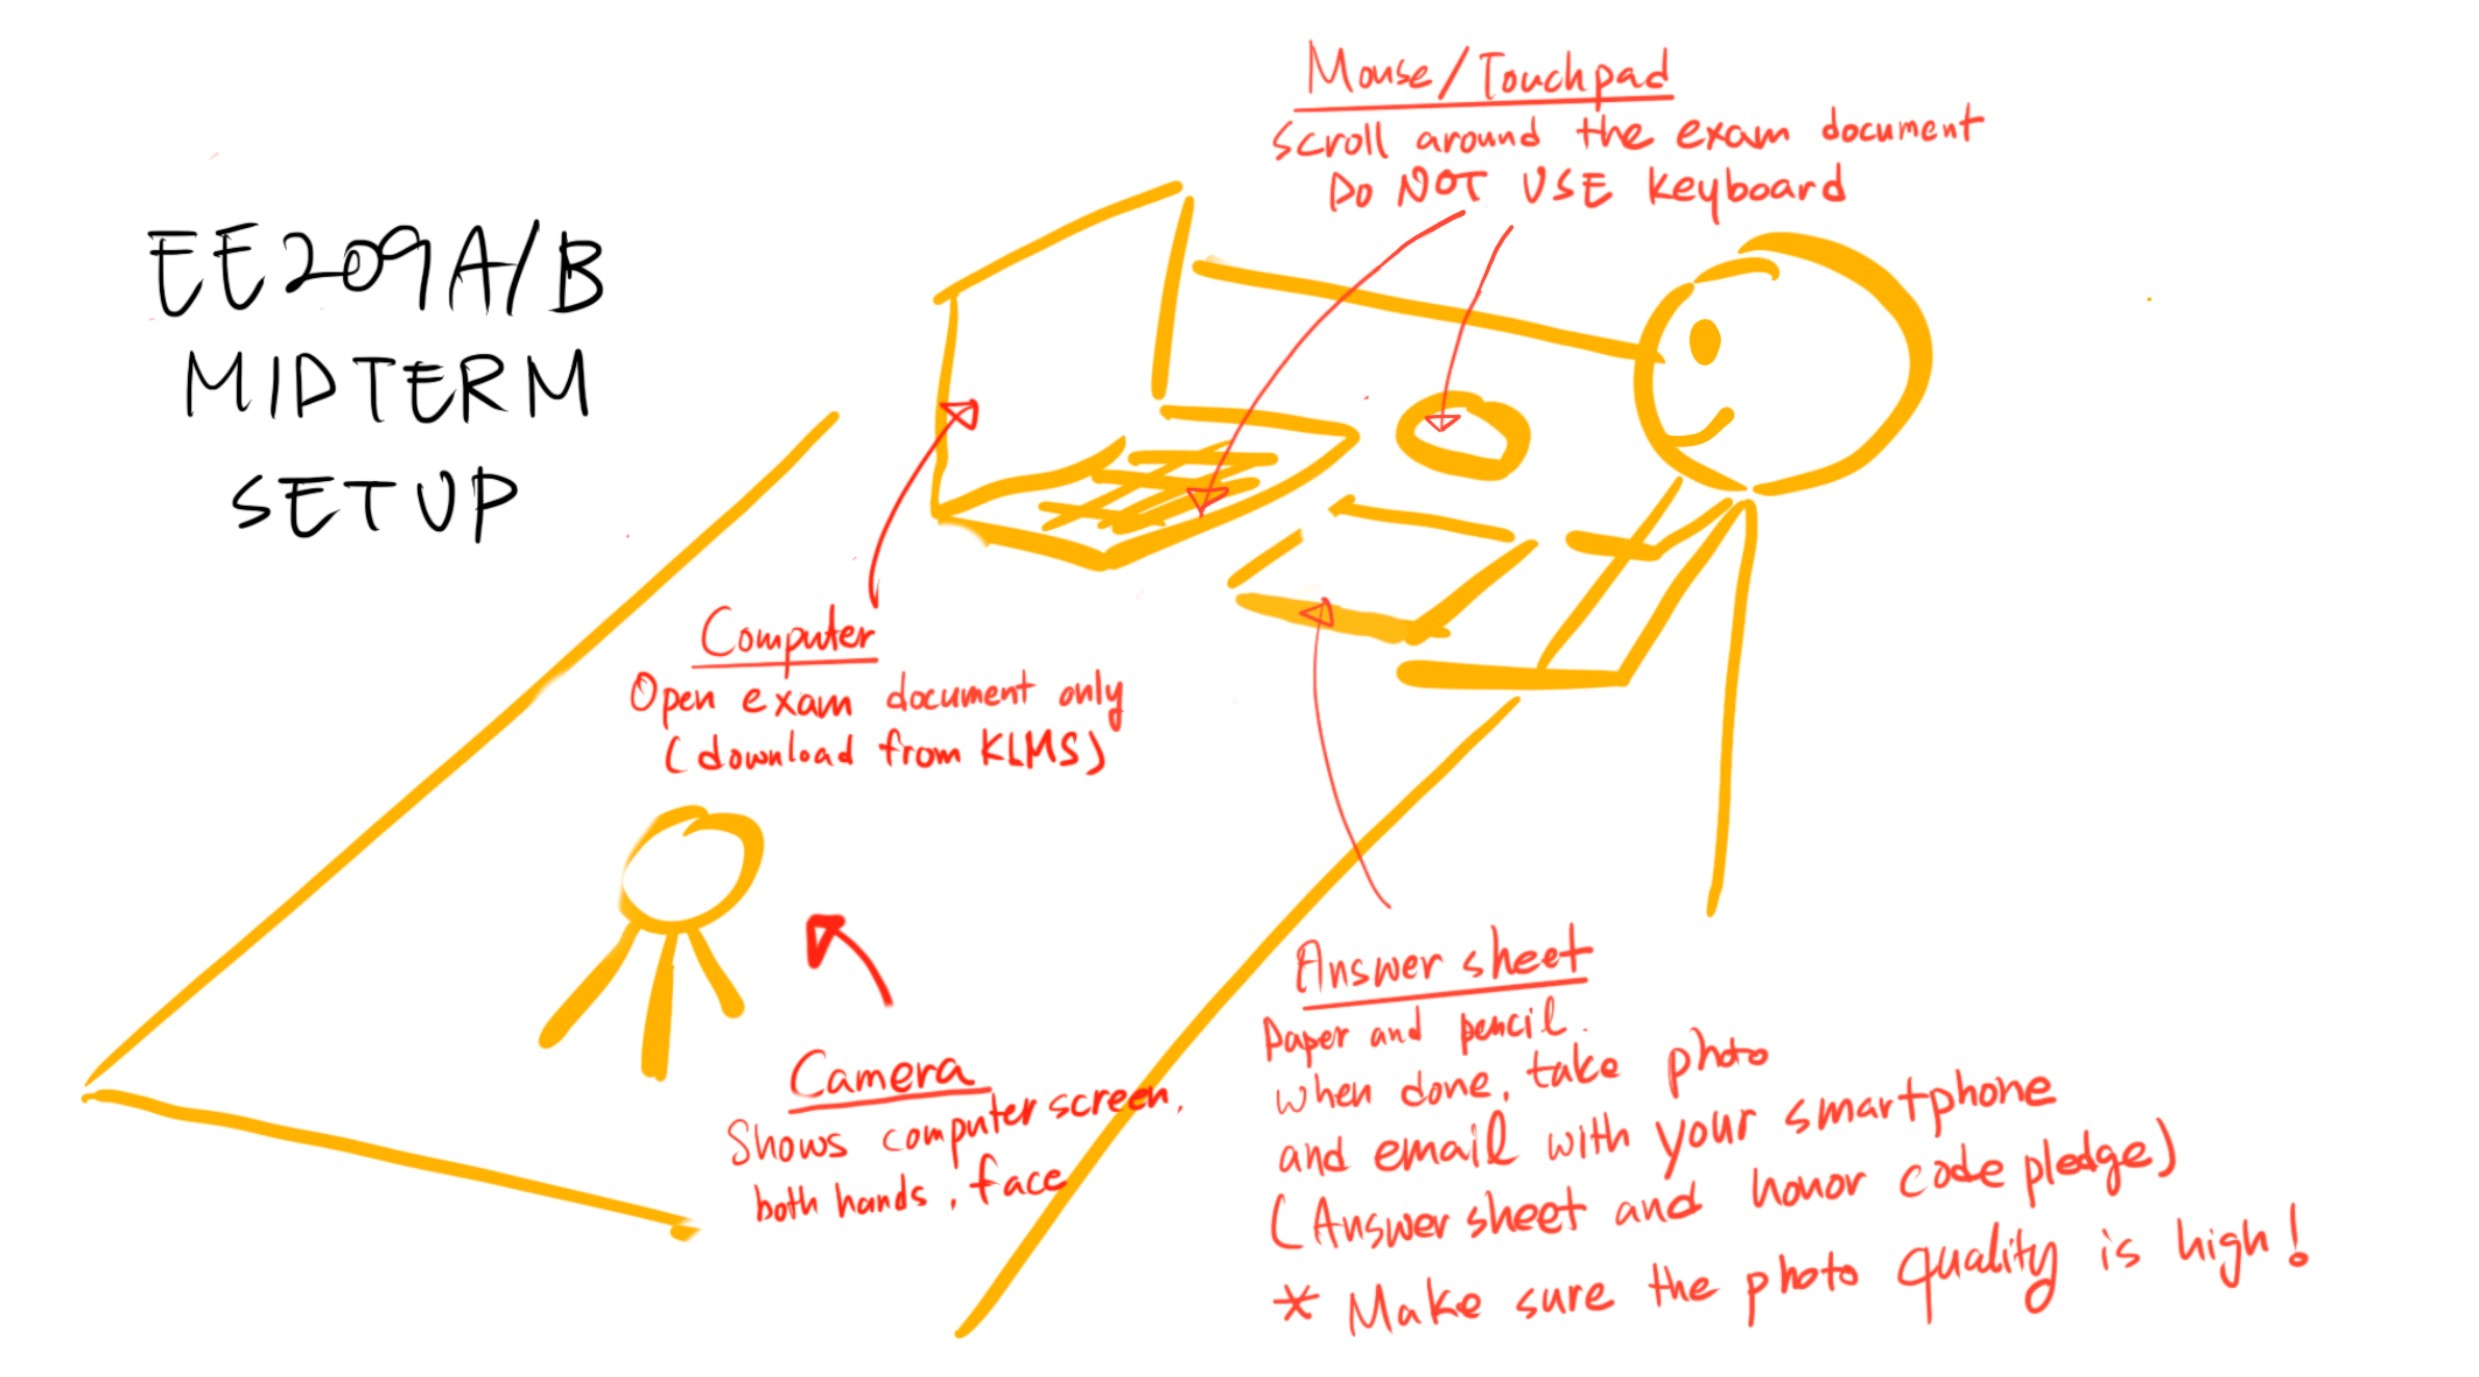 EE209A/B
MIDTERM
SETUP
Mouse/Touchpad
scroll around the exam document
Do NOT USE keyboard
Computer
Open exam document only
(download from KLMS)
Camera
Shows computer screen,
both hands, face
Answer sheet
Paper and pencil.
when done, take photo
and email with your smartphone
(Answer sheet and honor code pledge)
* Make sure the photo quality is high!